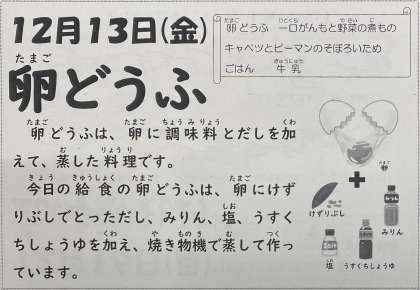 12月13日(金)
卵どうふ 一口がんもと野菜の煮もの
キャベツとピーマンのそぼろいため
ごはん 牛乳
卵どうふ
卵どうふは、卵に調味料とだしを加
えて、蒸した料理です。
今日の給食の卵どうふは、卵にけず
りぶしでとっただし、みりん、塩、うすく
ちしょうゆを加え、焼き物機で蒸して作っ
ています。
卵
けずりぶし
みりん
塩
うすくちしょうゆ